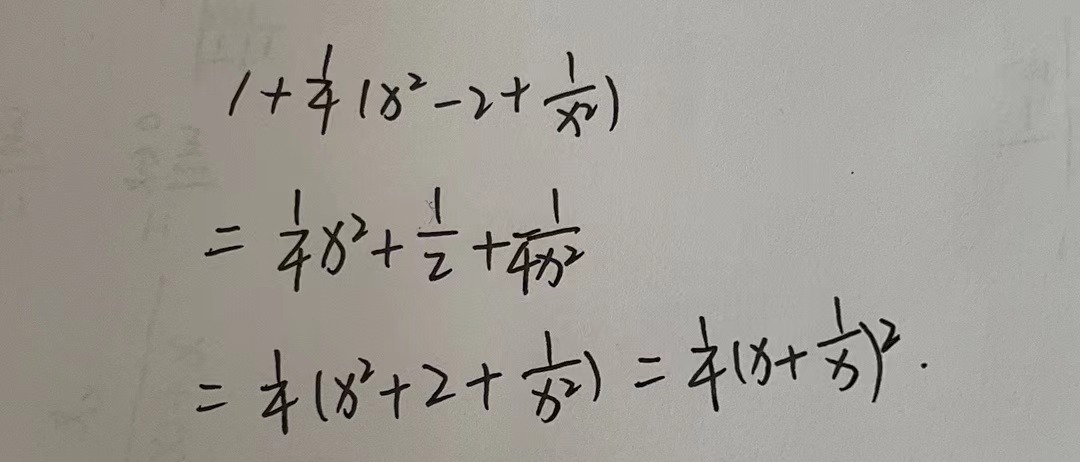 1+1/4(x²-2+1/x²)
=1/4x²+1/2+1/4x²
=1/4(x²+2+1/x²)=1/4(x+1/x)².